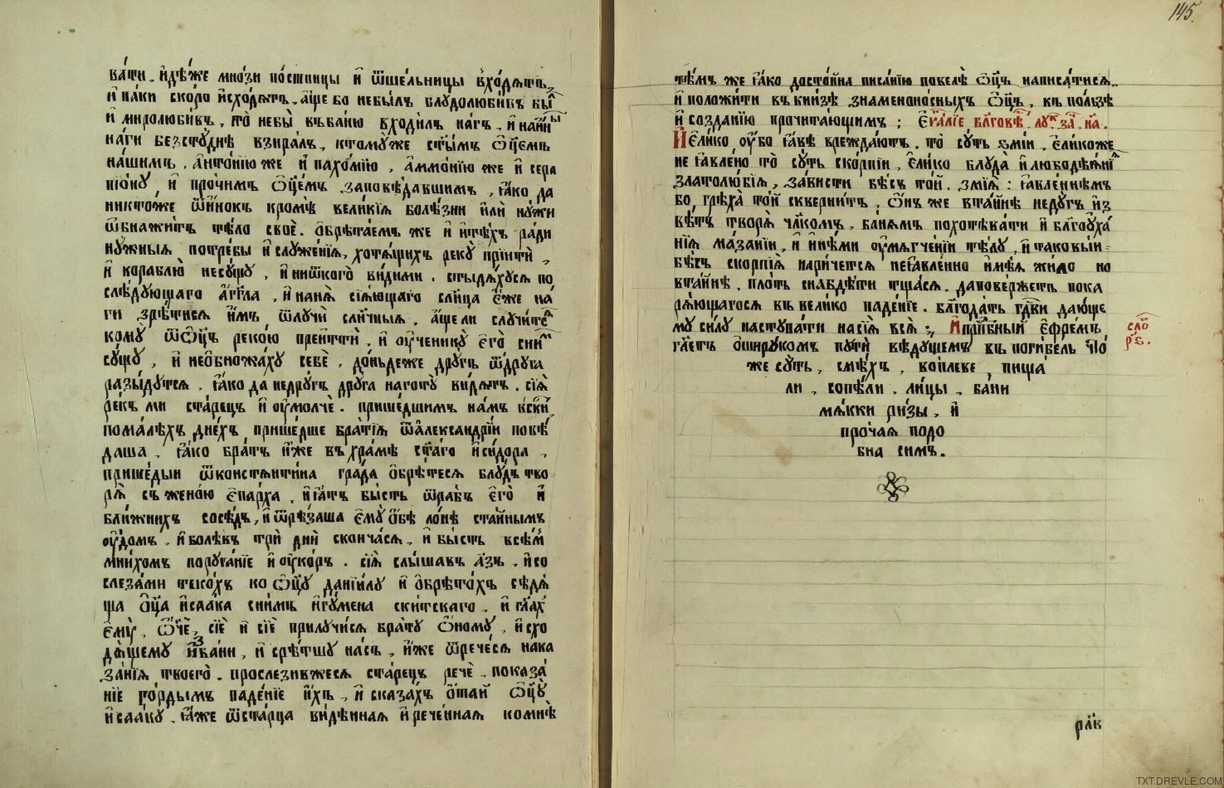 ва́ти. и҆дѣ́же мно́зи по́стницы и҆ ѿше́льницы вхо́дѧтъ,
и҆ па́ки ско́ро и҆схо́дѧтъ. а҆́ще бо не́былъ блꙋдолюби́въ бы
и҆ миролюби́въ, то̀ небы̀ въба́ню входи́лъ на́гъ. и҆ на и҆ны
на́ги безстꙋ́днѣ взира́лъ. ктомꙋ́же ст҃ы́мъ ѻ҆ц҃е́мъ
на́шимъ. а҆нто́нїю же и҆ пахо́мїю, а҆ммо́нїю же и҆ сера
пїо́нꙋ, и҆ про́чимъ ѻ҆ц҃е́мъ заповѣ́давшимъ, ꙗ҆́кѡ да
никто́же ѿи҆но́къ кромѣ̀ вели́кїѧ болѣ́зни и҆лѝ нꙋ́жи
ѡ҆бнажи́тъ тѣ́ло своѐ. ѡ҆брѣта́емъ же и҆ и҆тѣ́хъ ра́ди
нꙋ́жныѧ потре́бы и҆ слꙋже́нїѧ, хотѧ́щихъ рекꙋ̀ прїитѝ
и҆ кораблю̀ несꙋ́щꙋ, и҆ ни ѿкого̀ ви́дими. стыдѧ́хꙋсѧ по
слѣ́дꙋющаго а҆́гг҃ла, и҆ нанѧ̀ сїѧ́ющаго сл҃нца є҆́же на́
ги зрѣ́тисѧ и҆́мъ ѿлꙋчѝ сл҃нчныѧ. а҆́щели слꙋчи́тсѧ
комꙋ̀ ѿѻ҆ц҃ъ реко́ю преи́ти, и҆ ᲂу҆ченикꙋ̀ є҆гѡ̀ сни́мъ
сꙋ́щꙋ, и҆ неѡ҆бнажа́хꙋ себѐ, до́ндеже дрꙋ́гъ ѿдрꙋ́га
разы́дꙋтсѧ, ꙗ҆́кѡ да недрꙋ́гъ дрꙋ́га наготꙋ̀ ви́дѧтъ. сїѧ̀
ре́къ ми ста́рецъ и҆ ᲂу҆молчѐ. прише́дшимъ на́мъ вски́тъ
пома́лѣхъ дне́хъ, прише́дше бра́тїѧ ѿа҆леѯандрі́и повѣ́
даша, ꙗ҆́кѡ бра́тъ и҆́же въ хра́мѣ ст҃а́гѡ и҆си́дора,
прише́дыи ѿконстѧнти́на гра́да ѡ҆брѣ́тесѧ блꙋ́дъ тво
рѧ̀ съ жено́ю є҆па́рха, и҆ ꙗ҆́тъ бы́сть ѿра́бъ є҆гѡ̀ и҆
бли́жнихъ сосѣ́дъ, и҆ ѿрѣ́заша є҆мꙋ̀ ѻ҆́бѣ ло́нѣ ста́йнымъ
ᲂу҆́домъ. и҆ болѣ́въ трѝ днѝ сконча́сѧ. и҆ бы́сть всѣ́мъ
мни́хомъ порꙋга́нїе и҆ ᲂу҆ко́ръ. сїѧ̀ слы́шавъ а҆́зъ, и҆ со
слеза́ми теко́хъ ко ѻ҆ц҃ꙋ̀ данїи́лꙋ и҆ ѡ҆брѣто́хъ сѣдѧ́
ща ѻ҆ц҃а̀ и҆саа́ка сни́мъ и҆гꙋ́мена ски́тскаго, и҆ гл҃ахъ
є҆мꙋ̀, ѻ҆́ч҃е, сїѐ и҆ сїѐ прилꙋчи́сѧ бра́тꙋ ѻ҆́номꙋ, и҆схо
дѧ́щемꙋ и҆зба́ни, и҆ срѣ́тшꙋ на́съ, и҆́же ѿрече́сѧ нака
за́нїѧ твоегѡ̀. прослези́вжесѧ ста́рецъ речѐ. показа́
нїе го́рдымъ паде́нїе и҆́хъ, и҆ сказа́хъ ѻ҆ тай ѻ҆ц҃ꙋ̀
и҆саа́кꙋ. ꙗ҆́же ѿста́рца ви́дѣнная и҆ рече́нная комнѣ̀
145.
тѣ́мъ же ꙗ҆́кѡ досто́йна писа́нїю повелѣ̀ ѻ҆ц҃ъ написа́тисѧ.
и҆ положи́ти въ кни́зѣ знамено́сныхъ ѻ҆ц҃ъ, въ по́льзꙋ
и҆ созда́нїю прочита́ющимъ; є҆ѵⷢ҇а́лїе бл҃говѣ́. лꙋк. за. на.
И҆ є҆ли́ко ᲂу҆́бо ꙗ҆́вѣ вреждаютъ, то̀ сꙋ́ть ѕмі́и, є҆ли́коже
не ꙗ҆вле́но то̀ сꙋ́ть скорпі́и, є҆ли́ко блꙋда̀ и҆ любодѣѧ́нїѧ
златолю́бїѧ, за́висти бѣ́съ той. ѕмїѧ̀: ꙗ҆вле́ннѣмъ
бо грѣха̀ той скверни́тъ, ѻ҆́нъ же вта́йнѣ недꙋ́гъ и҆з
вѣ́тъ творѧ̀ чл҃комъ. ба́нѧмъ похотѣва́ти и҆ бл҃гоꙋха́
нїѧ ма́занїи, и҆ и҆нѣ́ми ᲂу҆мѧгче́нїи тѣ́лꙋ, и҆ таковы́и
бѣ́съ скорпі́ѧ нарича́етсѧ неꙗ҆вле́нно и҆мѣ́ѧ жи́ло но
вта́йнѣ. пло́ть снабдѣ́ти тща́сѧ. даповерже́тъ пока
рѧ́ющагосѧ въ вели́ко паде́нїе. благода́ть гдⷭ҇ви даю́ще
мꙋ си́лꙋ настꙋпа́ти насїѧ̀ всѧ̀; И҆ прпⷣбный є҆фре́мъ,
сло́
рє.
гл҃етъ ѡ҆ широ́комъ пꙋтѝ ведꙋ́щемъ въ поги́бель Что̀
же сꙋ́ть, смѣ́хъ, ко́плеве, пища́
ли, сопѣ́ли. ли́цы. ба́ни
мѧ́кки ри́зы, и҆
про́чая подо́
бна си́мъ.
рл҃к
TXT.DREVLE.COM